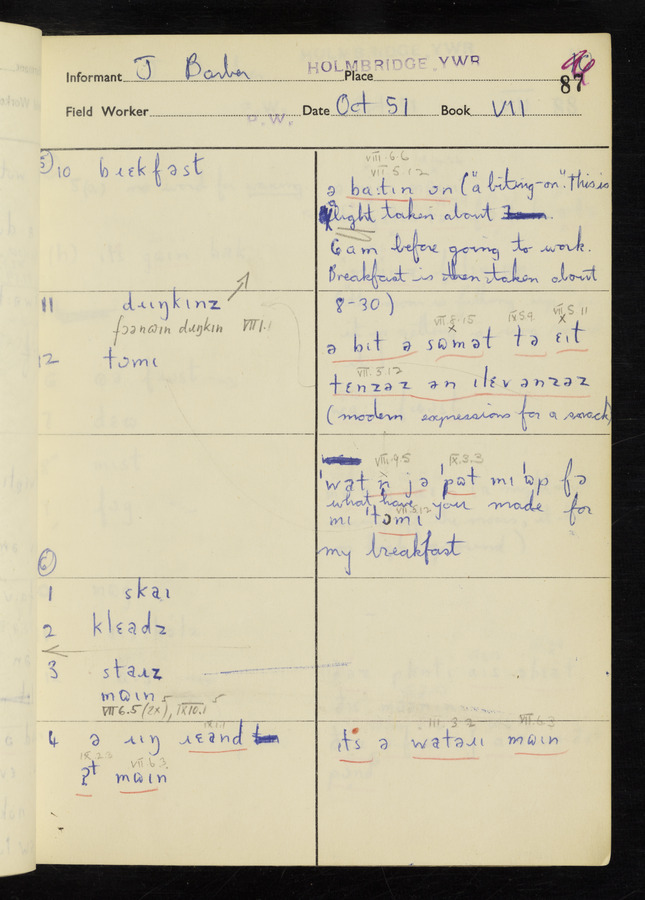 Informant J Barber HOLMBRIDGE, YWR Place
87
Field Worker P.W. Date Oct 51 Book VII
⑤ 10 bɹɛkfəst
VIII.6.6
VII.5.12
ə baːtɪn ɒn ("a biting-on". This is
light taken about
6 am before going to work.
Breakfast is then taken about
8-30)
11 dɹɪŋkɪnz
fɔənəɪn dɹɪŋkɪn VII.1.1
12 tɔmɪ
VII.8.15 IX.5.9 VII.5.11
ə bɪt ə sʊmət tə ɛɪt
VII.5.12
tɛnzəz ən ɪlɛvənzəz
(modern expressions for a snack)
VIII.9.5 IX.3.3
ˈwɒt n̩ jə ˈpʊt mɪ ˈʊp fə
what have you made for
VII.5.12
mɪ ˈtɔmɪ
my breakfast
⑥
1 skaɪ
2 klɛədz
3 staɹz
mʊɪn
VII.6.5 (2x), IX.10.1
4 ə ɹɪŋ ɹɛənd
IX.2.3 VII.6.3
ʔt mʊɪn
III.3.2 VII.6.3
ɪts ə watəɹɪ mʊɪn